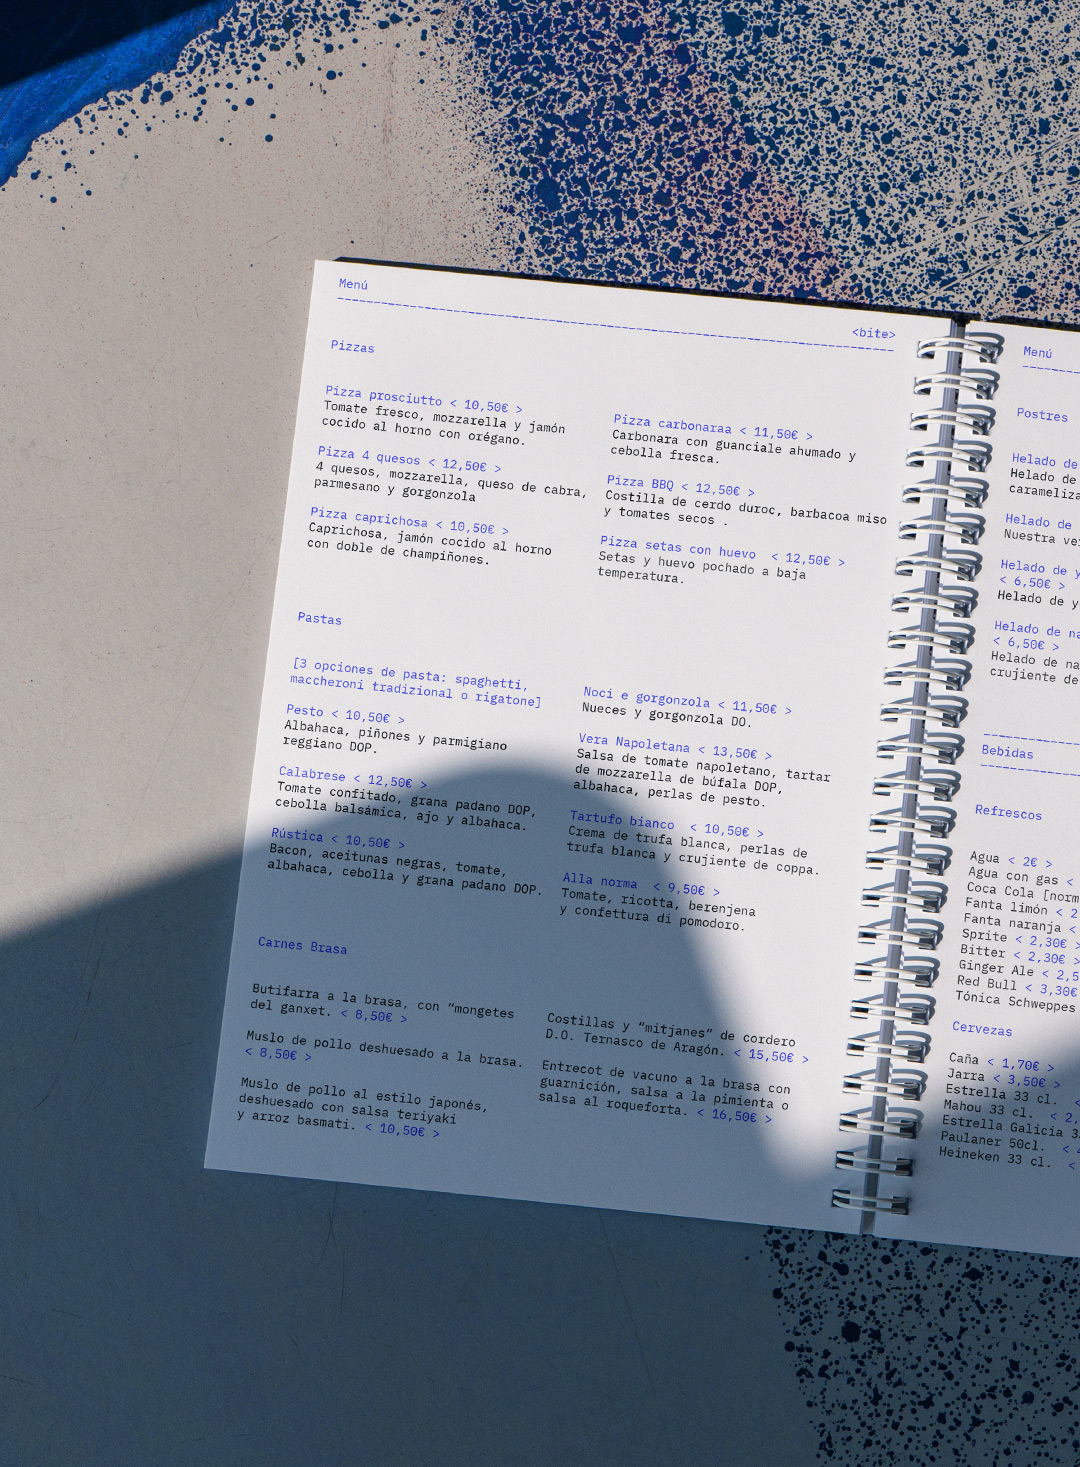 Menú
<bite>
Pizzas
Pizza prosciutto < 10,50€ >
Tomate fresco, mozzarella y jamón
cocido al horno con orégano.
Pizza 4 quesos < 12,50€ >
4 quesos, mozzarella, queso de cabra,
parmesano y gorgonzola
Pizza caprichosa < 10,50€ >
Caprichosa, jamón cocido al horno
con doble de champiñones.
Pizza carbonaraa < 11,50€ >
Carbonara con guanciale ahumado y
cebolla fresca.
Pizza BBQ < 12,50€ >
Costilla de cerdo duroc, barbacoa miso
y tomates secos .
Pizza setas con huevo < 12,50€ >
Setas y huevo pochado a baja
temperatura.
Pastas
[3 opciones de pasta: spaghetti,
maccheroni tradizional o rigatone]
Pesto < 10,50€ >
Albahaca, piñones y parmigiano
reggiano DOP.
Calabrese < 12,50€ >
Tomate confitado, grana padano DOP,
cebolla balsámica, ajo y albahaca.
Rústica < 10,50€ >
Bacon, aceitunas negras, tomate,
albahaca, cebolla y grana padano DOP.
Noci e gorgonzola < 11,50€ >
Nueces y gorgonzola DO.
Vera Napoletana < 13,50€ >
Salsa de tomate napoletano, tartar
de mozzarella de búfala DOP,
albahaca, perlas de pesto.
Tartufo bianco < 10,50€ >
Crema de trufa blanca, perlas de
trufa blanca y crujiente de coppa.
Alla norma < 9,50€ >
Tomate, ricotta, berenjena
y confettura di pomodoro.
Carnes Brasa
Butifarra a la brasa, con “mongetes
del ganxet. < 8,50€ >
Muslo de pollo deshuesado a la brasa.
< 8,50€ >
Muslo de pollo al estilo japonés,
deshuesado con salsa teriyaki
y arroz basmati. < 10,50€ >
Costillas y “mitjanes” de cordero
D.O. Ternasco de Aragón. < 15,50€ >
Entrecot de vacuno a la brasa con
guarnición, salsa a la pimienta o
salsa al roqueforta. < 16,50€ >
Menú
Postres
Helado de
Helado de
carameliza
Helado de
Nuestra ve
Helado de y
< 6,50€ >
Helado de y
Helado de na
< 6,50€ >
Helado de na
crujiente de
Bebidas
Refrescos
Agua < 2€ >
Agua con gas <
Coca Cola [norm
Fanta limón < 2
Fanta naranja <
Sprite < 2,30€ >
Bitter < 2,30€ >
Ginger Ale < 2,5
Red Bull < 3,30€
Tónica Schweppes
Cervezas
Caña < 1,70€ >
Jarra < 3,50€ >
Estrella 33 cl. <
Mahou 33 cl. < 2,
Estrella Galicia 3
Paulaner 50cl. < 4
Heineken 33 cl. <